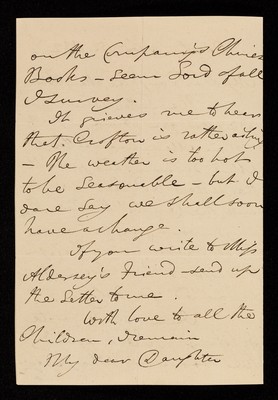 on the Company's Chinese
Books – seem Lord of all
I survey.
It grieves me to hear
that Crofton is rather ailing
– The weather is too hot
to be seasonable – but I
dare say we shall soon
have a change.
If you write to Miss
Aldersey's Friend – send up
the letter to me.
With love to all the
Children, I remain
My dear Daughter